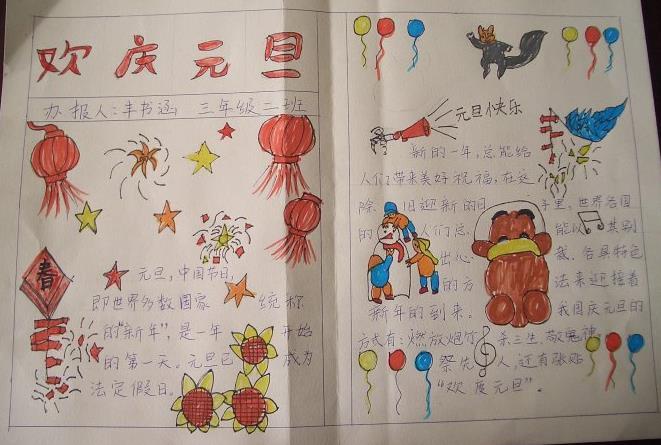 欢庆元旦
办报人：丰书涵 三年级二班
春
元旦，中国节日，
即世界多数国家 统称
的“新年”，是一年 开始
的第一天。元旦已 成为
法定假日。
元旦快乐
新的一年，总能给
人们带来美好祝福，在这
除旧迎新的日 子里，世界各国
的 人们总 能以 其别
出心 裁、各具特色
的方 法来迎接着
新年的到来。 我国庆元旦的
方式有：燃放炮竹 杀三生，敬鬼神
祭先 人，还有张贴
“欢度元旦”。